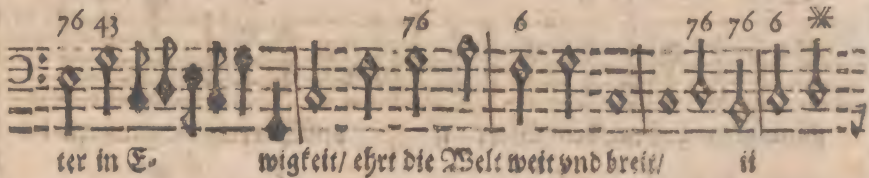 76 43 76 6 76 76 6
ter in E- wigkeit/ ehrt die Welt weit vnd breit/ ij